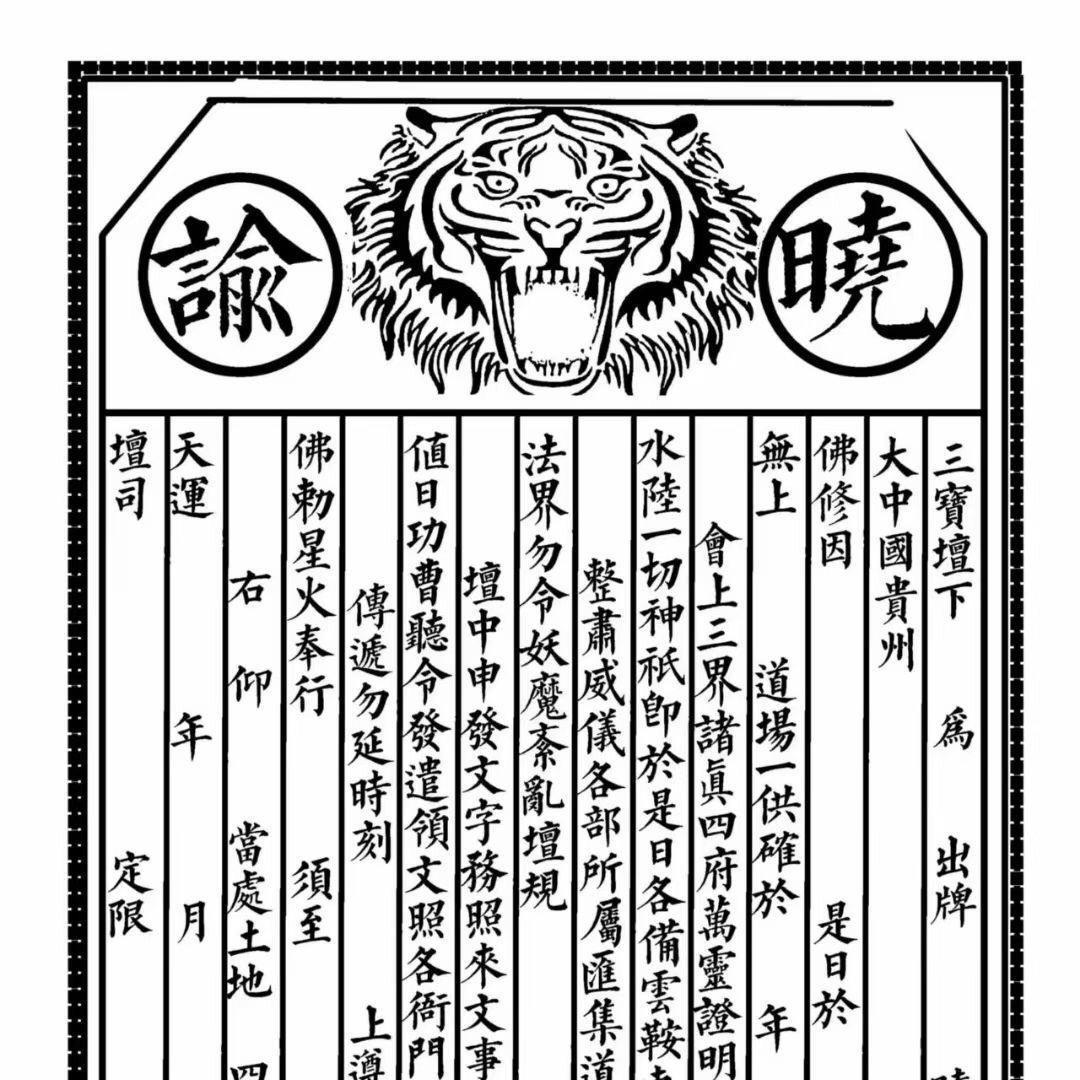 曉諭
三寶壇下 爲 出牌
大中國貴州
佛修因 是日於
無上 道場一供確於 年
會上三界諸眞四府萬靈證明
水陸一切神祇卽於是日各備雲鞍
整肅威儀各部所屬匯集道
法界勿令妖魔紊亂壇規
壇中申發文字務照來文事
值日功曹聽令發遣領文照各衙門
傳遞勿延時刻 上遵
佛勅星火奉行 須至
右仰 當處土地 四
天運 年 月
壇司 定限